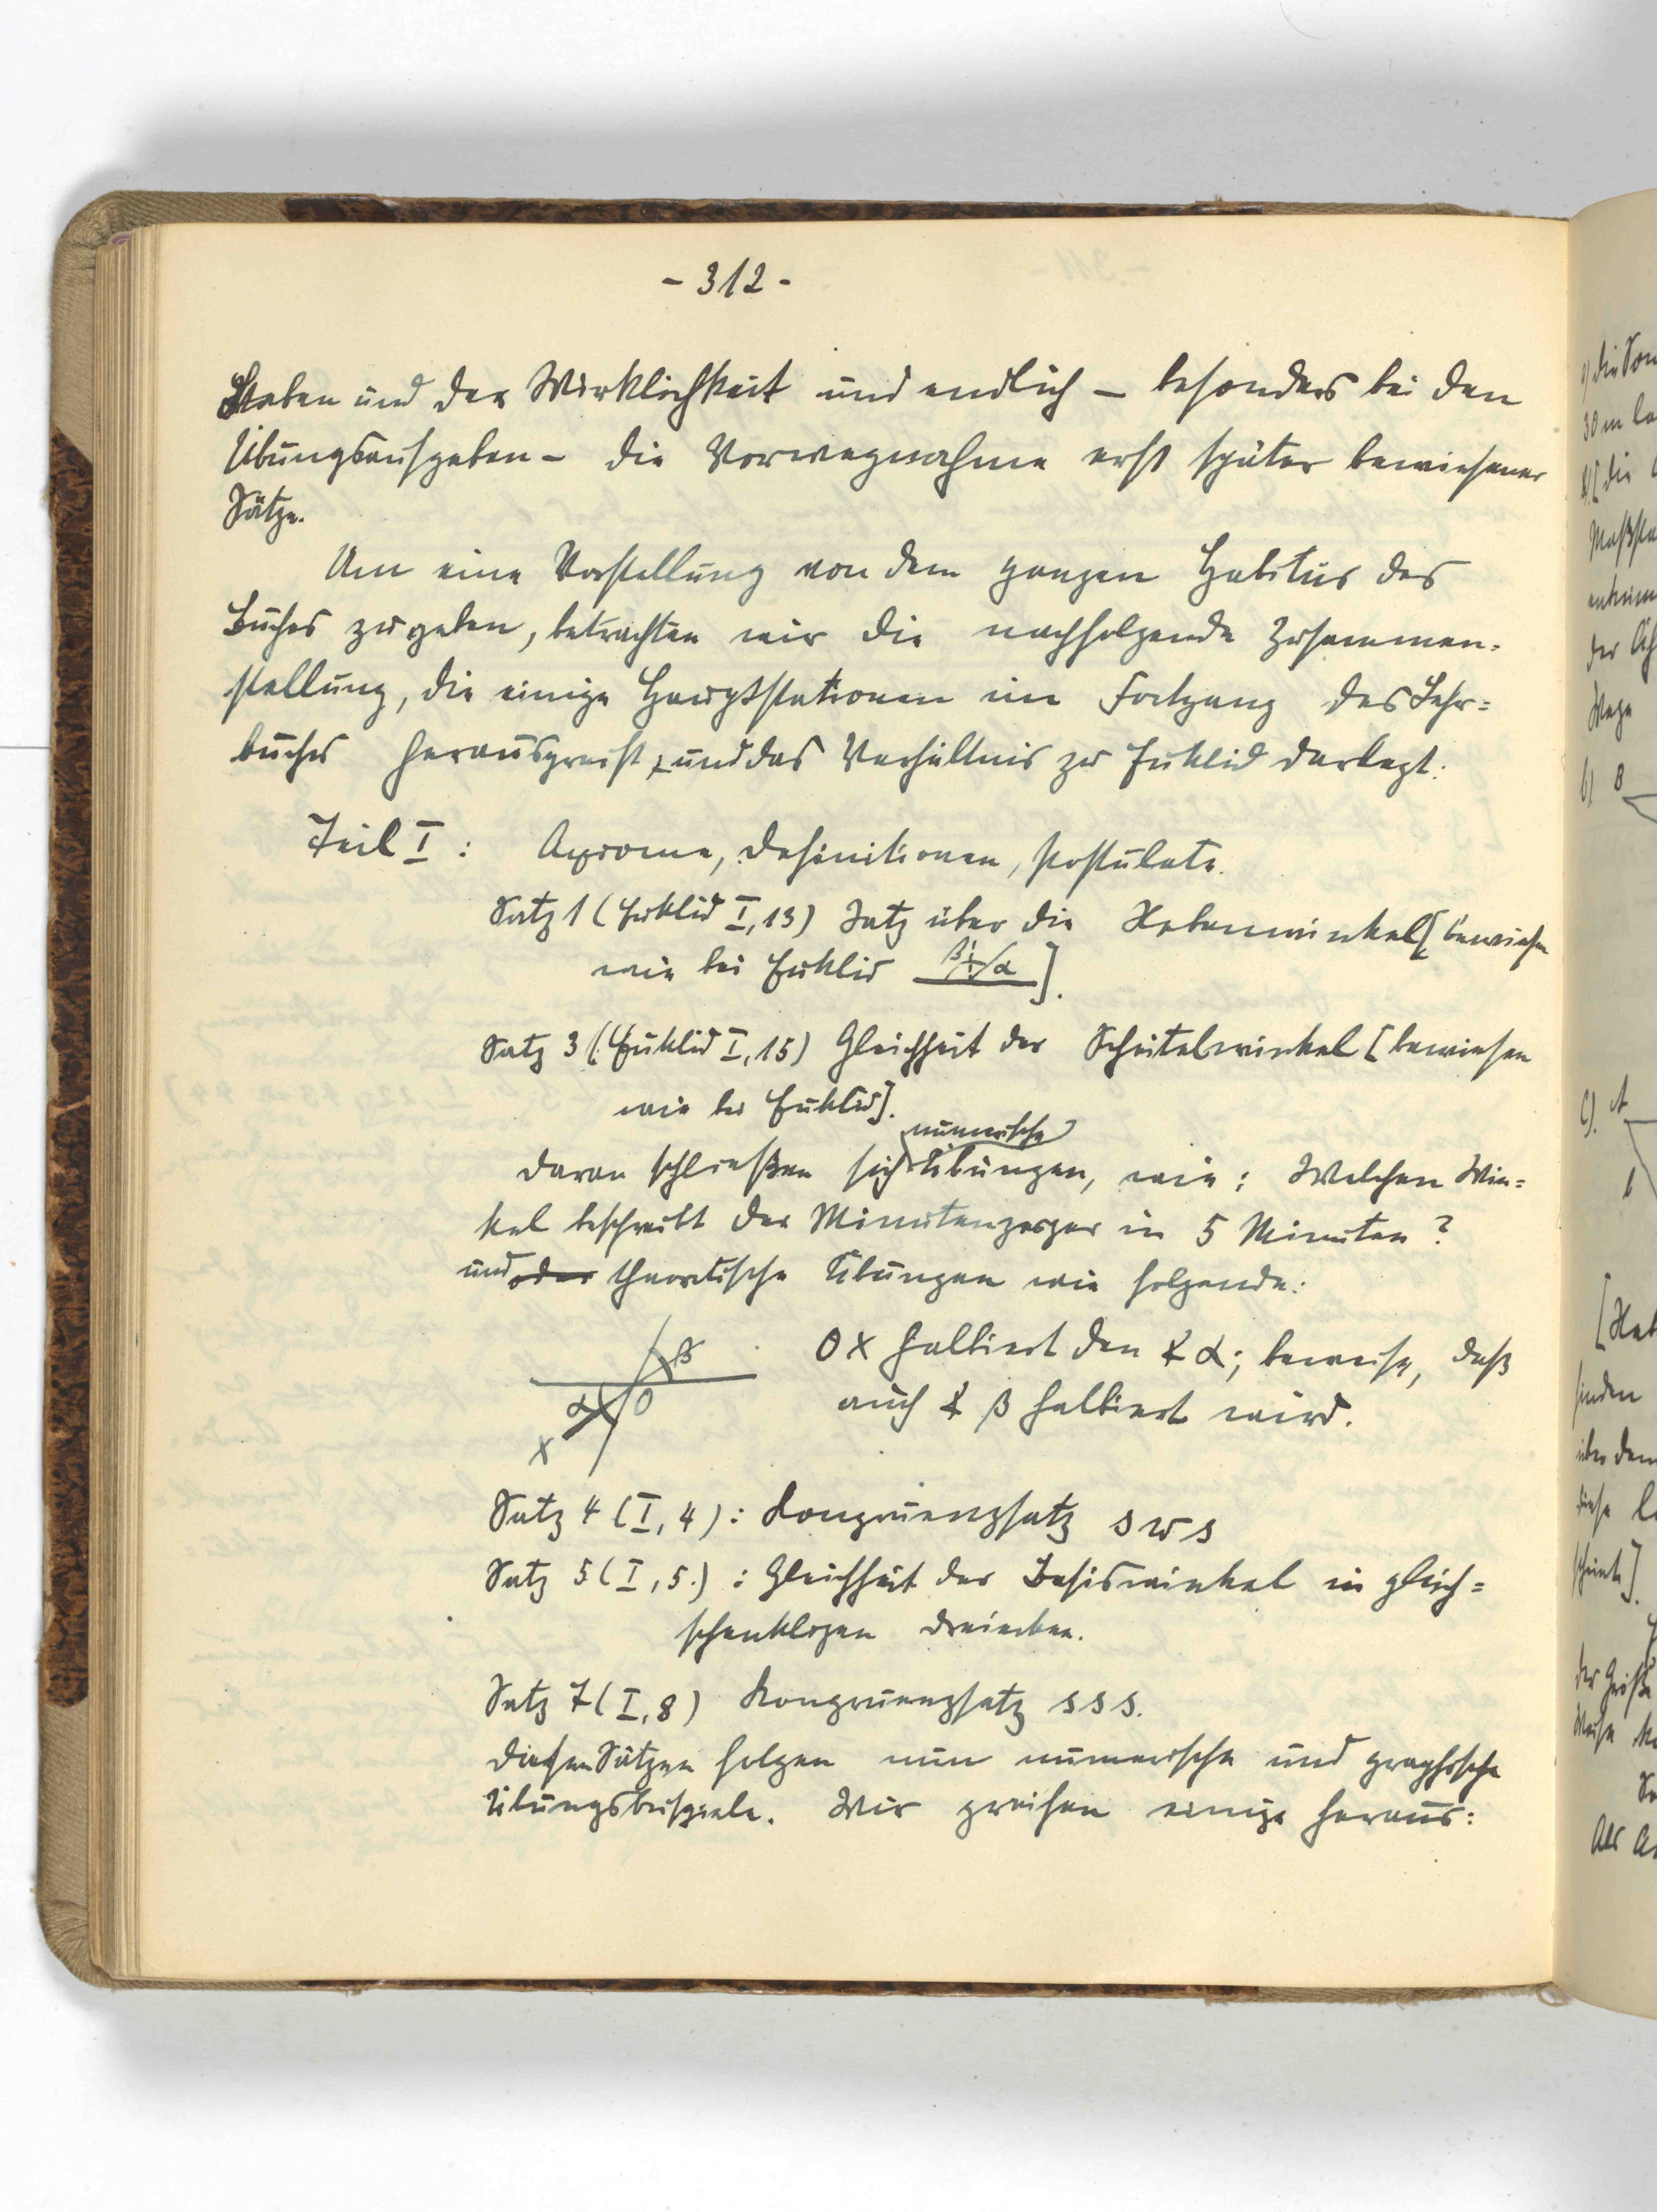 - 312 -
Leben und der Wirklichkeit und endlich – besonders bei den
Übungsaufgaben – die Vorwegnahme erst später bewiesener
Sätze.
Um eine Vorstellung von dem ganzen Habitus des
Buches zu geben, betrachten wir die nachfolgende Zusammen-
stellung, die einige Hauptstationen im Fortgang des Lehr=
buches herausgreift, und das Verhältnis zu Euklid darlegt:
Teil I : Axiome, Definitionen, Postulate.
Satz 1 (Euklid I, 13) Satz über die Nebenwinkel [bewiesen
wie bei Euklid β α ].
Satz 3 (Euklid I, 15) Gleichheit der Scheitelwinkel [bewiesen
wie bei Euklid].
numerische
Daran schließen sich Übungen, wie: Welchen Win=
kel beschreibt der Minutenzeiger in 5 Minuten?
und oder theoretische Übungen wie folgende:
β
α O
X
OX halbiert den ∢ α; beweise, daß
auch ∢ β halbiert wird.
Satz 4 (I, 4) : Kongruenzsatz s w s
Satz 5 (I, 5.) : Gleichheit der Basiswinkel in gleich=
schenkligen Dreiecken.
Satz 7 (I, 8) Kongruenzsatz s s s.
Diesen Sätzen folgen nun numerische und graphische
Übungsbeispiele. Wir greifen einige heraus:
30 m
b) B
c). A